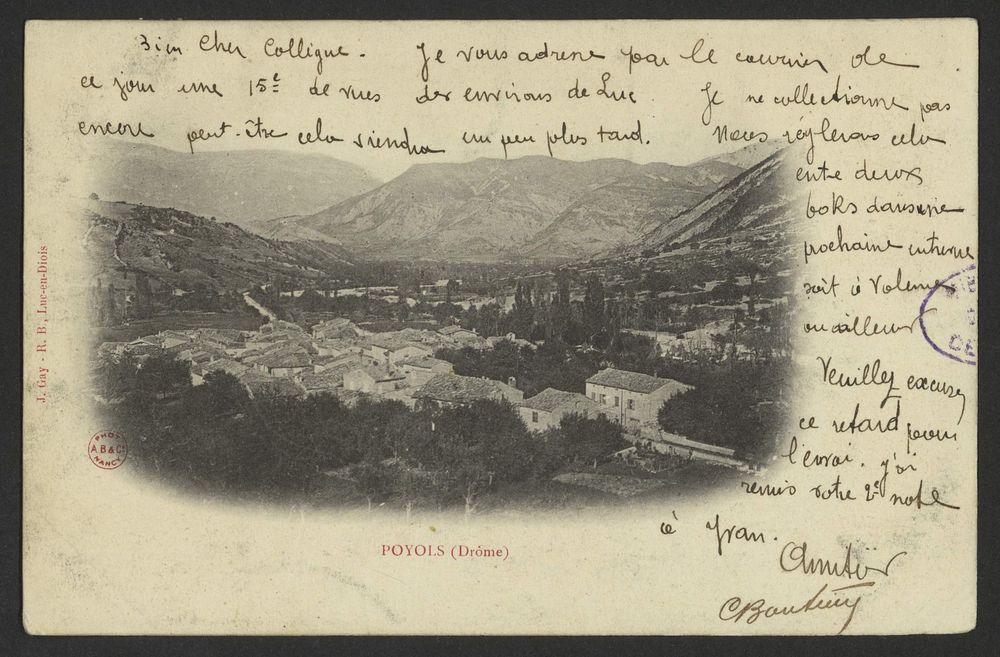 Bien Cher Collègue. Je vous adresse par le courrier de
ce jour une 15e de vues des environs de Luc. Je ne collectionne pas
encore peut-être cela viendra un peu plus tard. Nous règlerons cela
entre deux
boks dans une
prochaine
soit à
ou ailleurs
Veuillez excusez
ce retard pour
l'envoi. j'ai
remis votre 2e note
à Yvan.
Amitiés
J. Gay - R. B., Luc-en-Diois
PHOT
A.B & Cie
NANCY
POYOLS (Drôme)